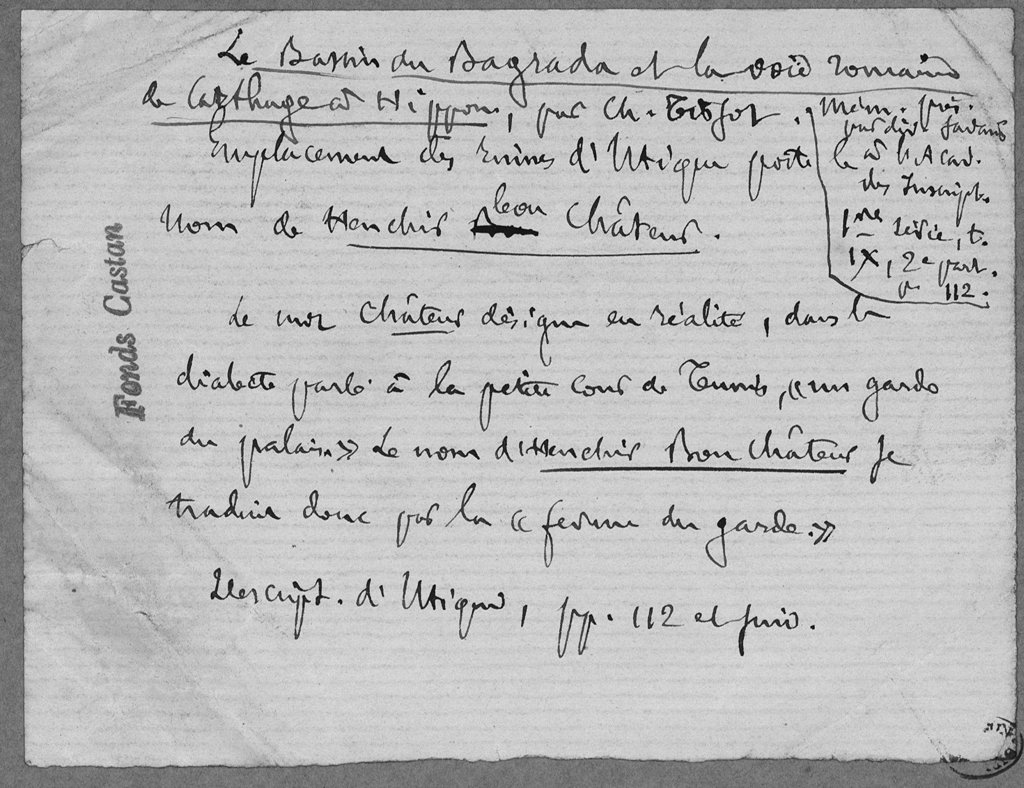 Le Bassin du Bagrada et la voie romaine
de Carthage à Hippone, par Ch. Tissot.
Mém. prés.
par div. savans
à l'Acad.
des Inscript.
1re série, t.
IX, 2e part.
p. 112.
Emplacement des ruines d'Utique porte le
nom de Henchir bou Châteur.
Le mot Châteur désigne en réalité, dans le
dialecte parlé à la petite cour de Tunis, « un garde
du palais. » Le nom d'Henchir Bou Châteur se
traduit donc par la « ferme du garde. »
Descript. d'Utique, pp. 112 et suiv.
Fonds Castan